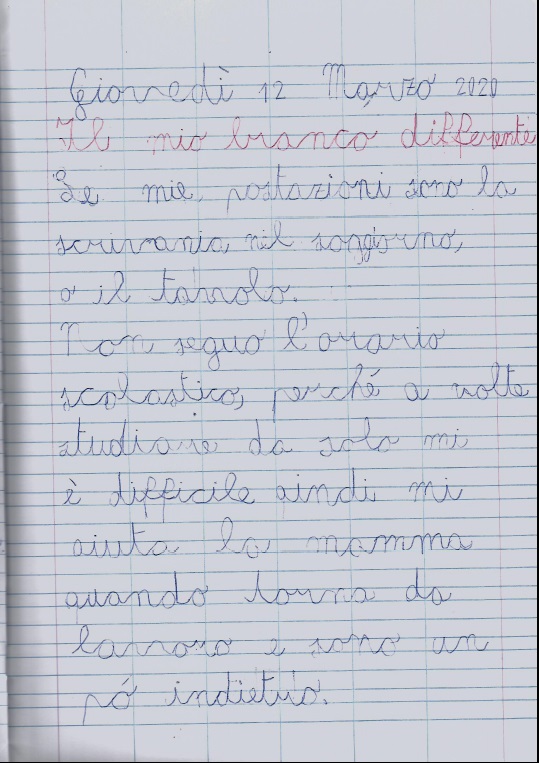 Giovedì 12 Marzo 2020
Il mio branco differente
Le mie postazioni sono la
scrivania nel soggiorno,
o il tavolo.
Non seguo l'orario
scolastico, perché a volte
studiare da solo mi
è difficile aindi mi
aiuta la mamma
quando torna da
lavoro e sono un
pó indietro.